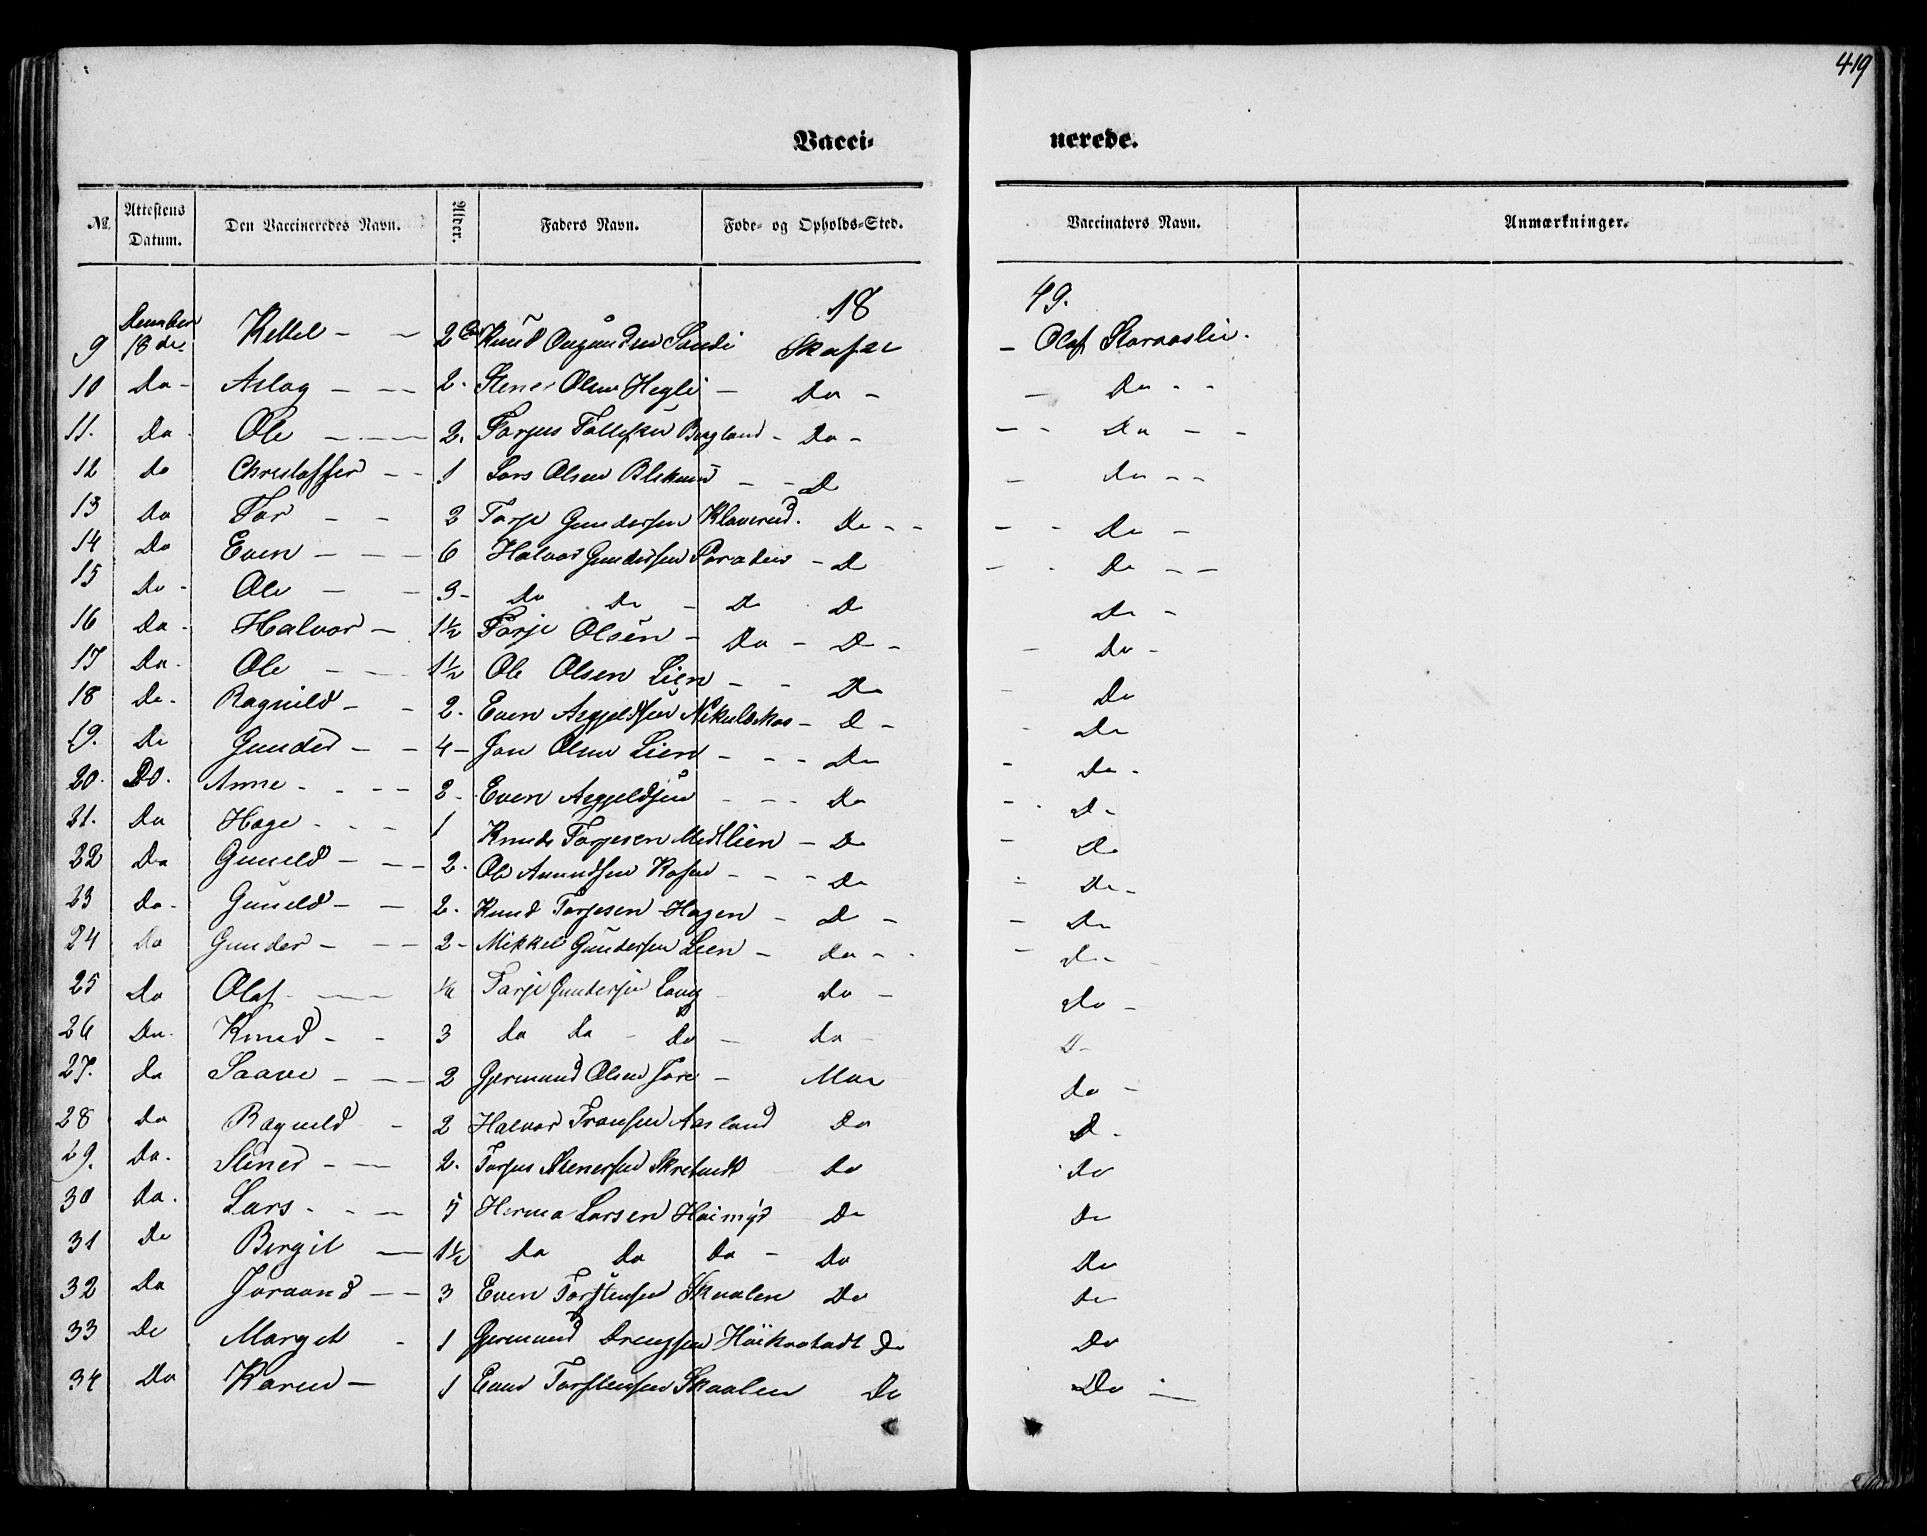 419
Vacci- nerede.
No. Attestens Datum. Den Vaccineredes Navn. Alder. Faders Navn. Føde- og Opholds-Sted. Vaccinators Navn. Anmærkninger.
18 49.
9 December 18de Kettel - - 2 Knud Sandi Skafsaa - Olaf Storaaslie.
10 Do - Aslag - - - 2. Stener Olsen Hegli - Do - - Do - -
11. Do - Ole - - - 2. Torjus Tollefsen Bergland - Do - - - Do - -
12 do Christoffer - - 1 Lars Olsen - - D - do - -
13 Do Tor - - 2 Torje Gundersen Klaverud. Do - - - - Do -
14 Do Even - - - 6 Halvor Gundersen Paradeis - D - - Do - -
15 Do - Ole - - 3 - Do Do - Do D Do -
16 Do - Halvor - 1½ Torje Olsen - Do - D - - Do -
17 Do - Ole - - - 1½ Ole Olsen Lien - - Do - Do
18 Do - Ragnild - - 2. Even Asgjeldsen - D - - Do
19. Do Gunder - - 4 - Jon Olsen Lien - - - Do - Do -
20. Do. Anne - - - - 2 - Even Asgjeldsen - - - Do - - D -
21. Do Hage - - - 1 Knud Torjesen Medlien - D - Do
22 Do Guneld - - - 2. Ole Amundsen - - - Do - Do -
23 Do - Guneld - - 2. Knud Torjesen Hagen - D - - Do
24 Do Gunder - - - 2 - Mikkel Gundersen Lien - Do - - - do -
25 Do Olaf - - - ¼ Torje Gundersen do - do -
26 Do - Knud - - 3 do do - do - do - D -
27. do Saave - - - 2 Gjermund Olsen - Moe do -
28 do Ragneld - 2 Halvor Aasland Do D -
29. Do. Stener - - 2. Torjus Stenersen Do - do
30 Do. Lars - - - 5 Larsen Do Do
31 Do Bergit - 1½ Do Do Do - Do Do
32 Do Joraand - - 3 Even Torstensen Skaalen Do Do
33 Do Margit - 1 Gjermund Do Do
34 Do Karen - 1 Even Torstensen Skaalen Do Do -